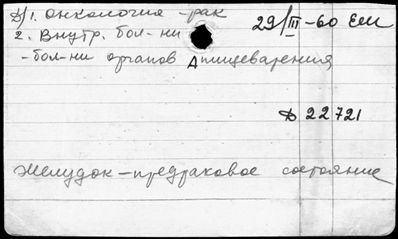 1. онкология - рак
29/III - 60 Ели
2. Внутр. бол-ни
- бол-ни органов пищеварения
22721
Желудок - предраковое состояние